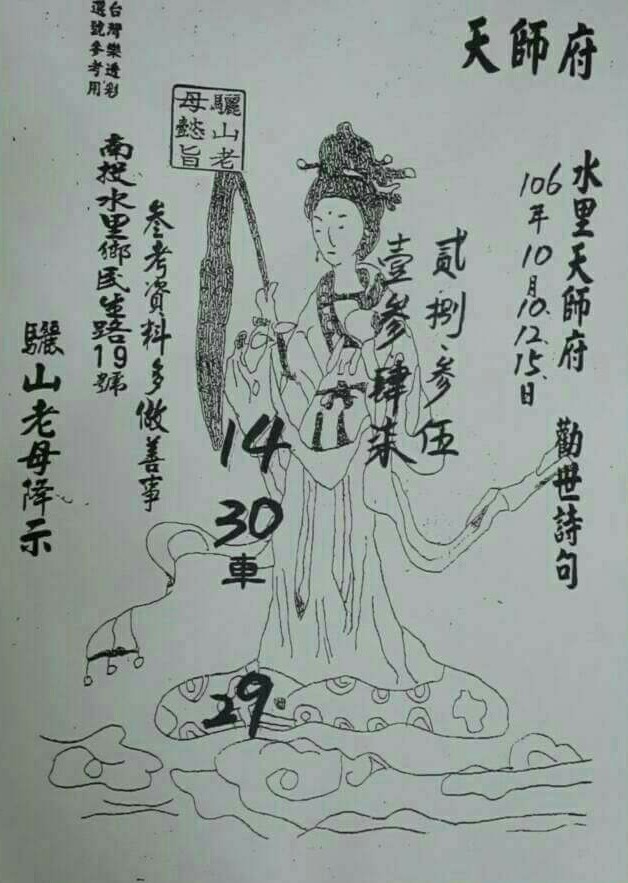 天師府
水里天師府 勸世詩句
106年10月10.12.15.日
貳.捌、參伍
壹參肆柒
驪山老
母懿旨
14
30
車
29
參考資料多做善事
南投水里鄉民生路19號
台灣樂透彩
選號參考用
驪山老母降示